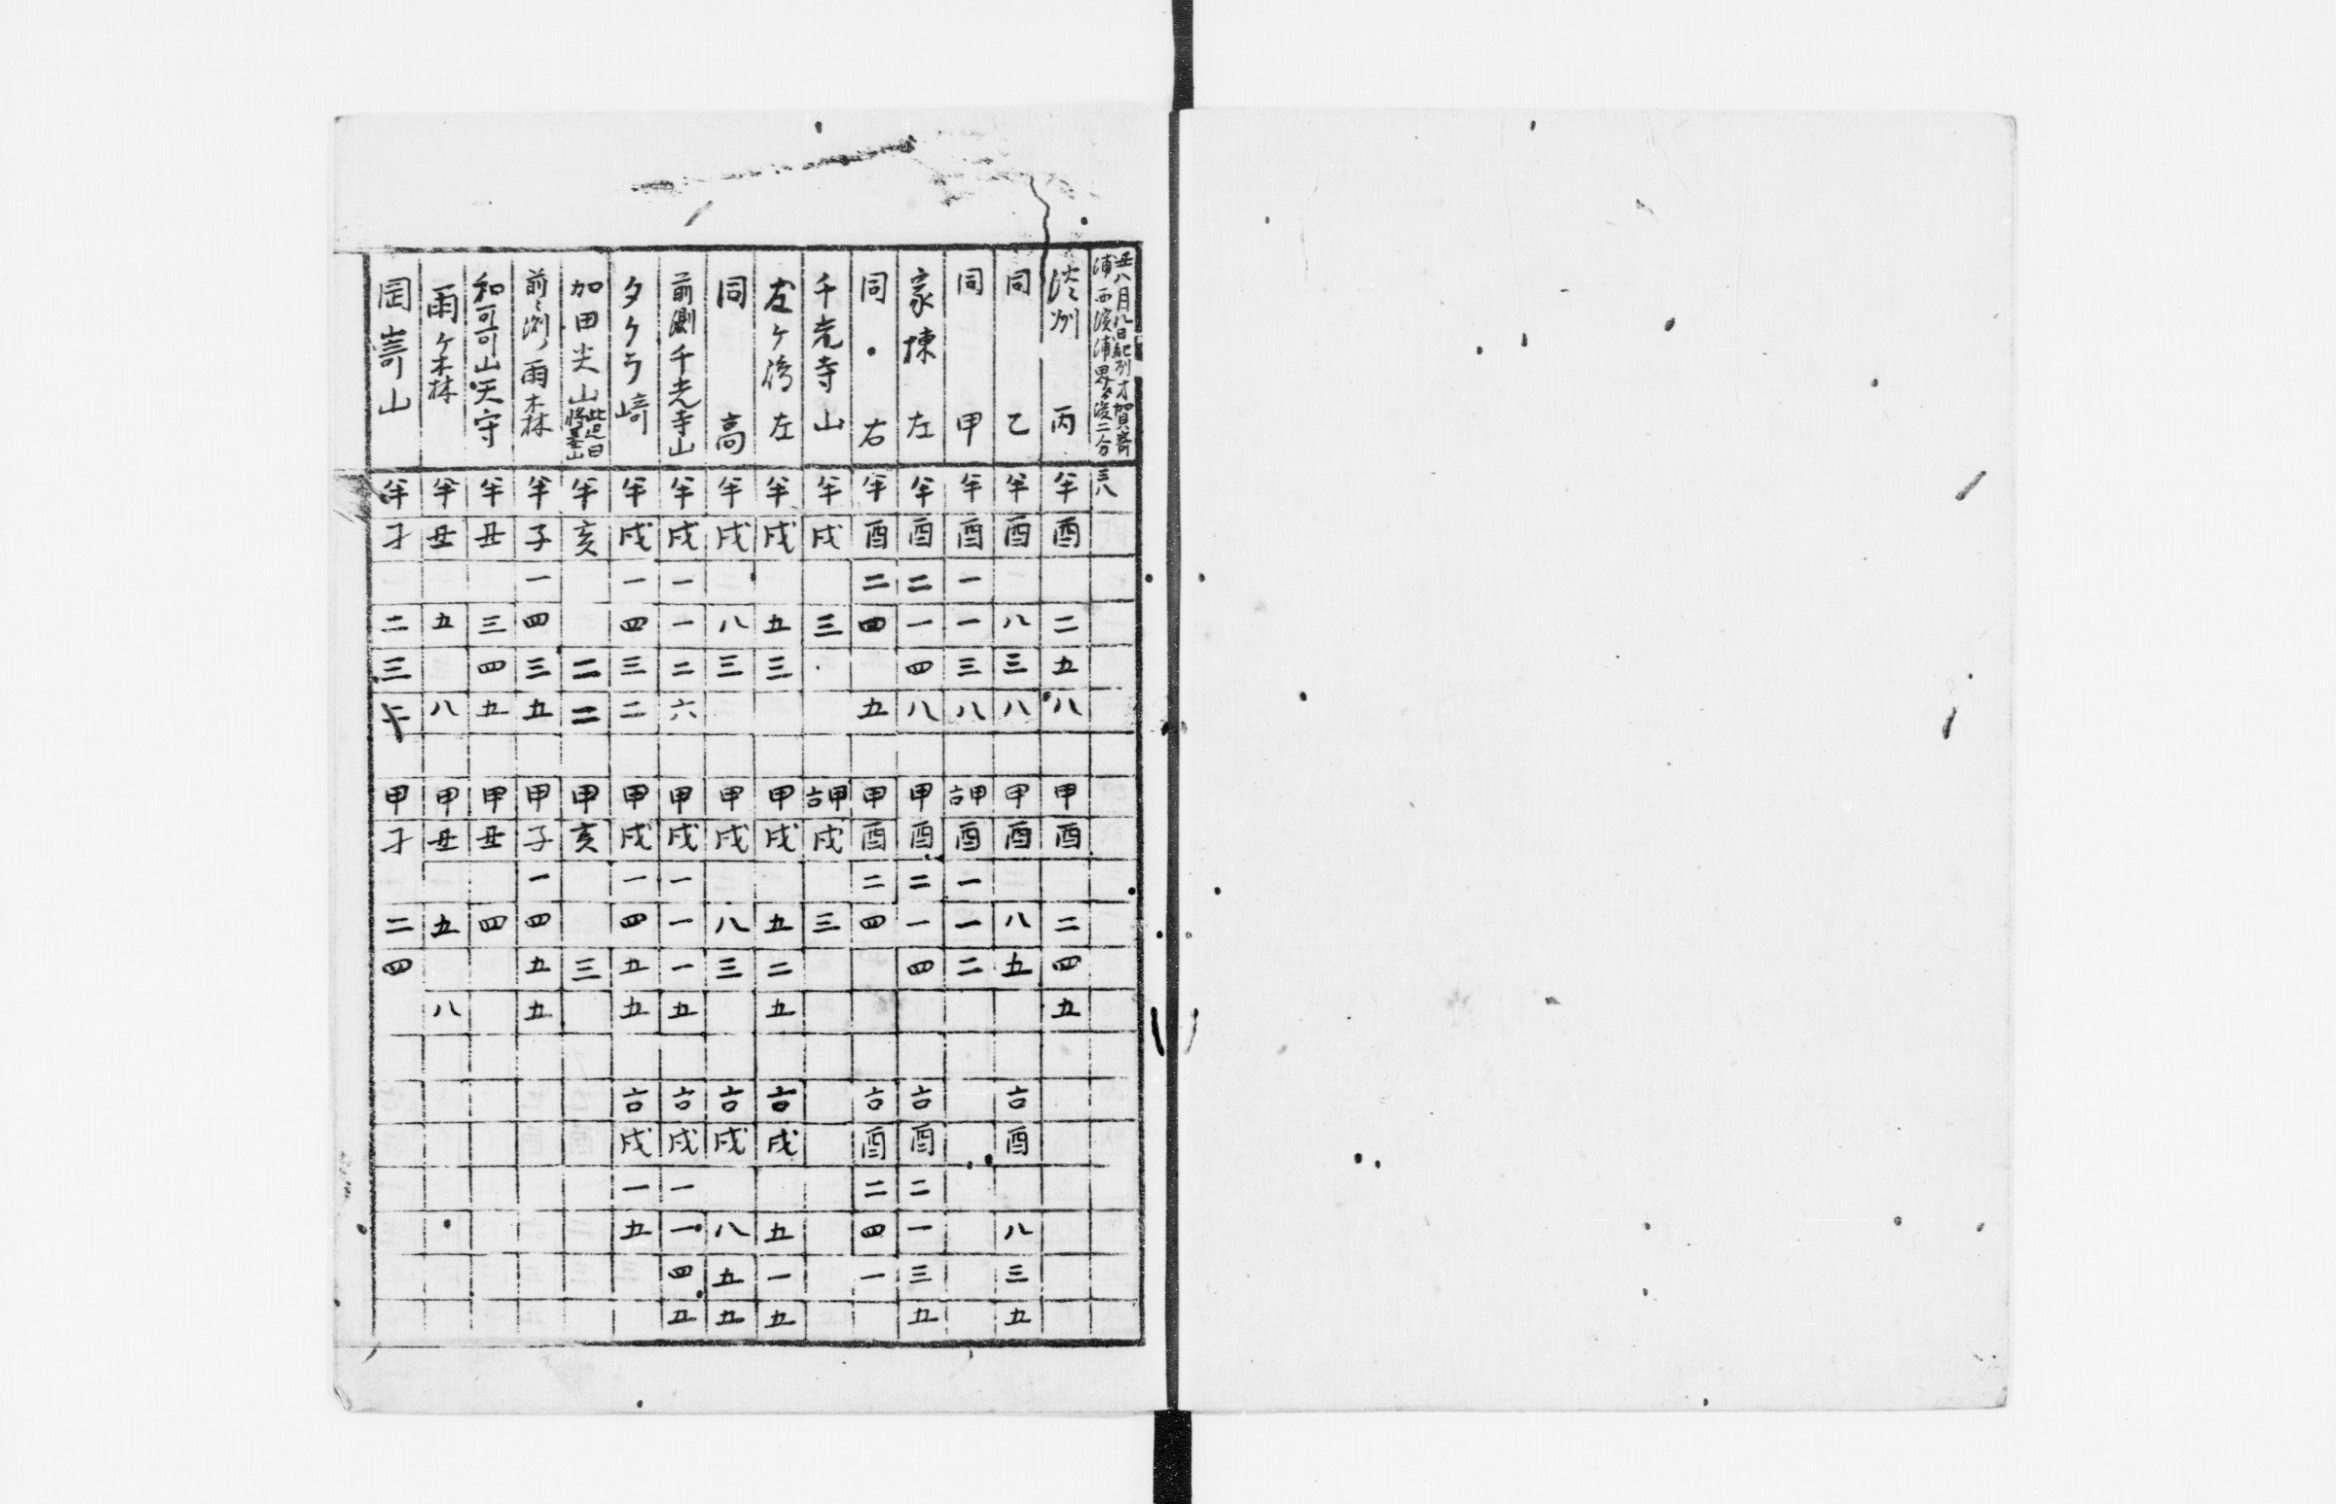 丑八月八日紀列才賀嵜
浦西濱浦界ゟ後二分 三八
淡州 丙 半 酉 二 五 八 甲 酉 二 四 五
同 乙 半 酉 八 三 八 甲 酉 八 五 吉 酉 八 三 五
同 甲 半 酉 一 一 三 八 吉甲 酉 一 一 二
家棟 左 半 酉 二 一 四 八 甲 酉 二 一 四 吉 酉 二 一 三 五
同 右 半 酉 二 四 五 甲 酉 二 四 吉 酉 二 四 一
千光寺山 半 戌 三 吉甲 戌 三
左 半 戌 五 三 甲 戌 五 二 五 吉 戌 五 一 五
同 高 半 戌 八 三 甲 戌 八 三 吉 戌 八 五 五
前測千光寺山 半 戌 一 一 二 六 甲 戌 一 一 一 五 吉 戌 一 一 四 五
タケラ﨑 半 戌 一 四 三 二 甲 戌 一 四 五 五 吉 戌 一 五
加田尖山 半 亥 二 二 甲 亥 三
前ニ測ル雨森 半 子 一 四 三 五 甲 子 一 四 五 五
和哥山天守 半 丑 三 四 五 甲 丑 四
雨ケ森 半 丑 五 八 甲 丑 五 八
岡嵜山 半 子 二 三 甲 子 二 四